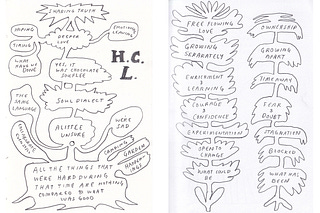 SHARING TRUTH
DEEPER
LOVE
TIMING
WHAT
HAVE WE
DONE
YES, IT
WAS CHOCOLATE
SOUFFLEE
H.C.
L.
THE SAME
LANGUAGE
SOUL DIALECT
A LITTLE
UNSURE
WERE
SAD
CAMPING
GARDEN
ALL THE THINGS THAT
WERE HARD DURING
THAT TIME ARE NOTHING
COMPARED TO WHAT
WAS GOOD
FREE FLOWING
LOVE
GROWING
SEPARATELY
ENRICHMENT
OF
LEARNING
COURAGE
&
CONFIDENCE
EXPERIMENTATION
OPEN TO
CHANGE
WHAT COULD
BE
OWNERSHIP
GROWING
APART
TIME AWAY
FEAR
&
DOUBT
STAGNATION
BLOCKED
WHAT HAS
BEEN